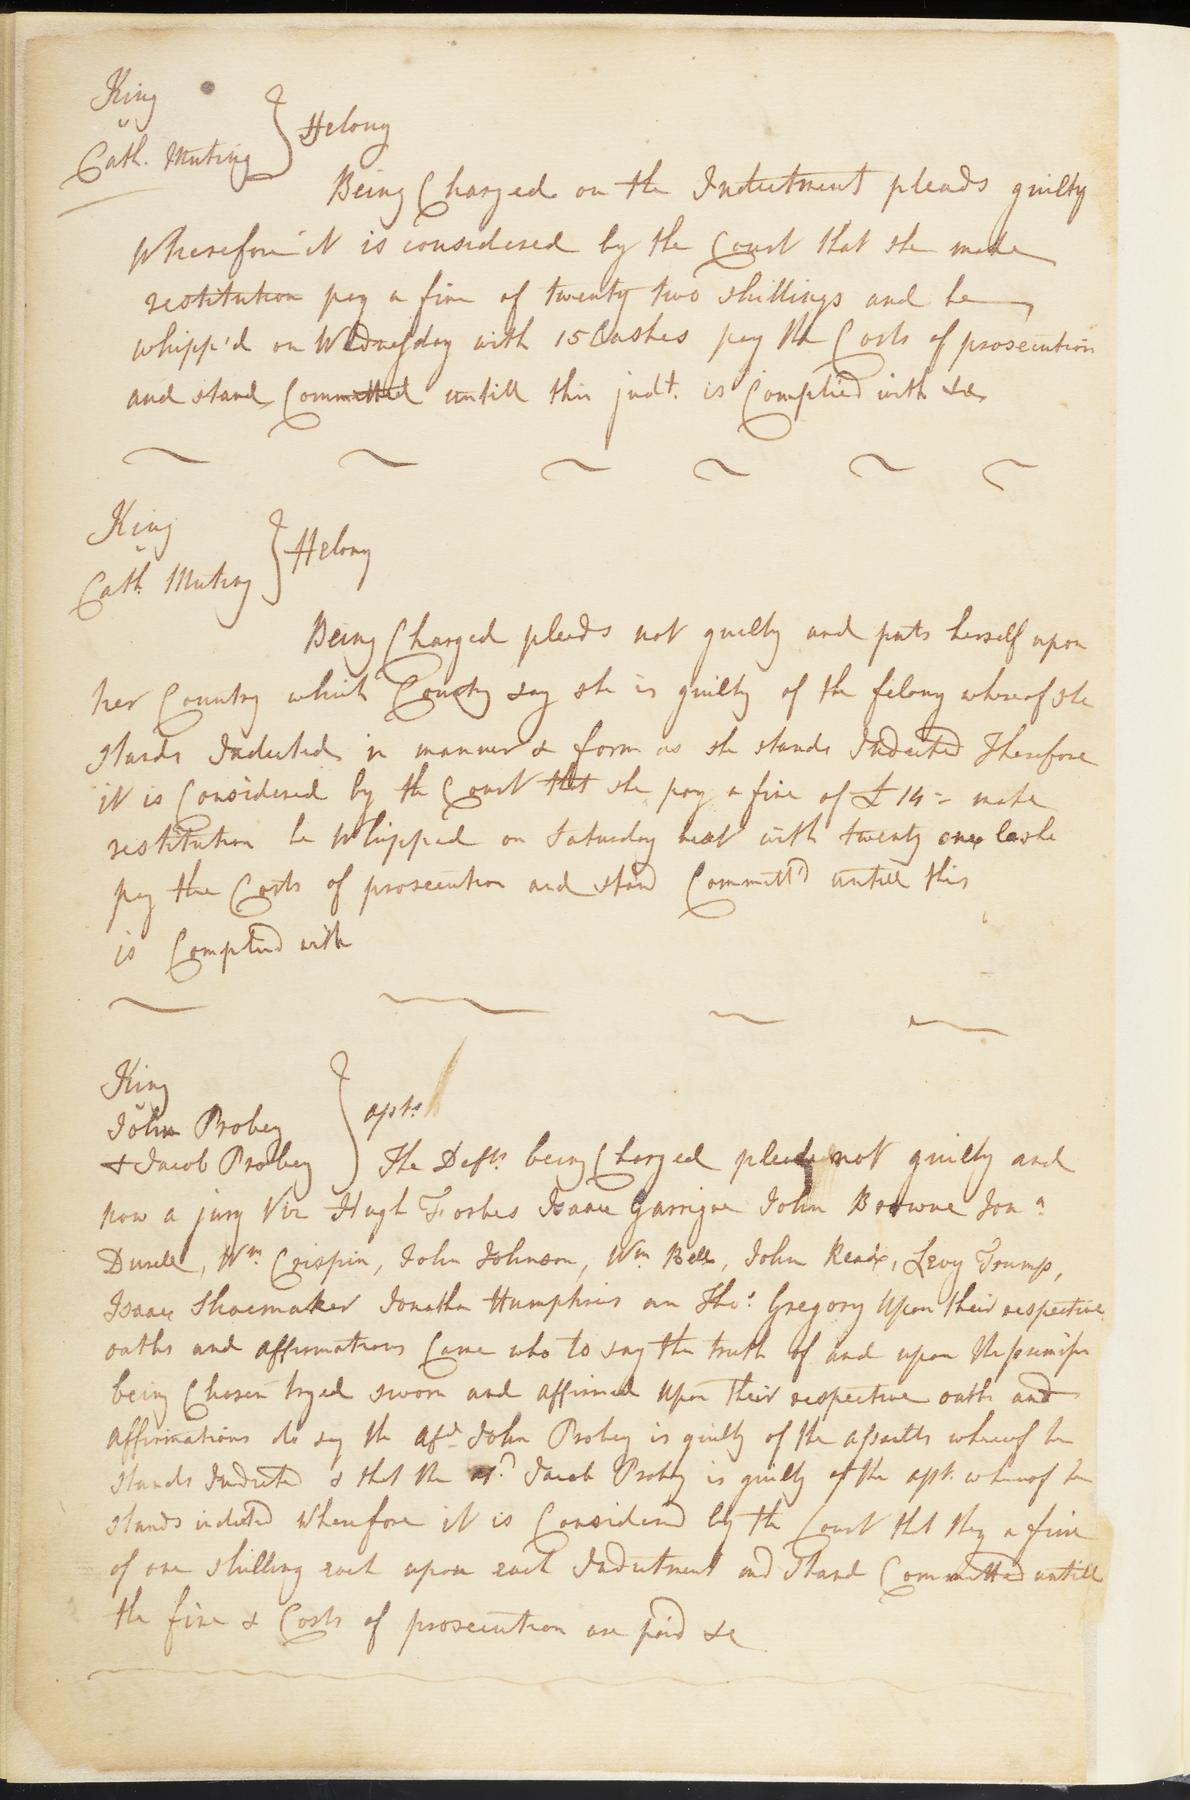 King
v
Cath. Muting } Felony
Being Charged on the Indictment pleads guilty
Wherefore it is considered by the Court that she make
restitution pay a fine of twenty two shillings and be
whipp'd on Wednesday with 15 Lashes pay the Costs of prosecution
and stand Committed untill this judt. is Complied with &c
King
v
Cath. Muting } Felony
Being Charged pleads not guilty and puts herself upon
her Country which Country say she is guilty of the felony whereof she
stands Indicted in manner & form as she stands Indicted Therefore
it is Considered by the Court that she pay a fine of £ 14 = make
restitution be Whipped on Saturday next with twenty one lashe
pay the Costs of prosecution and stand Committ'd untill this
is Complied with
King
v
John Probey
& Jacob Probey } asst.
The Defts. being Charged pleads not guilty and
now a jury Viz Hugh Forbes Isaac Garrigue John Browne Jona
Durell, Wm. Crispin, John Johnson, Wm. Bell, John Reade, Levy Trump,
Isaac Shoemaker Jonathn Humphris an Thos. Gregory Upon their respective
oaths and affirmations Came who to say the truth of and upon the premises
being Chosen tryed sworn and affirmed Upon their respective oaths and
affirmations do say the afd. John Probey is guilty of the assaults whereof he
stands Indicted & that the afd. Jacob Probey is guilty of the asst. whereof he
stands indicted Wherefore it is Considered by the Court tht they a fine
of one shilling each upon each Indictment and Stand Committed untill
the fine & Costs of prosecution are paid &c